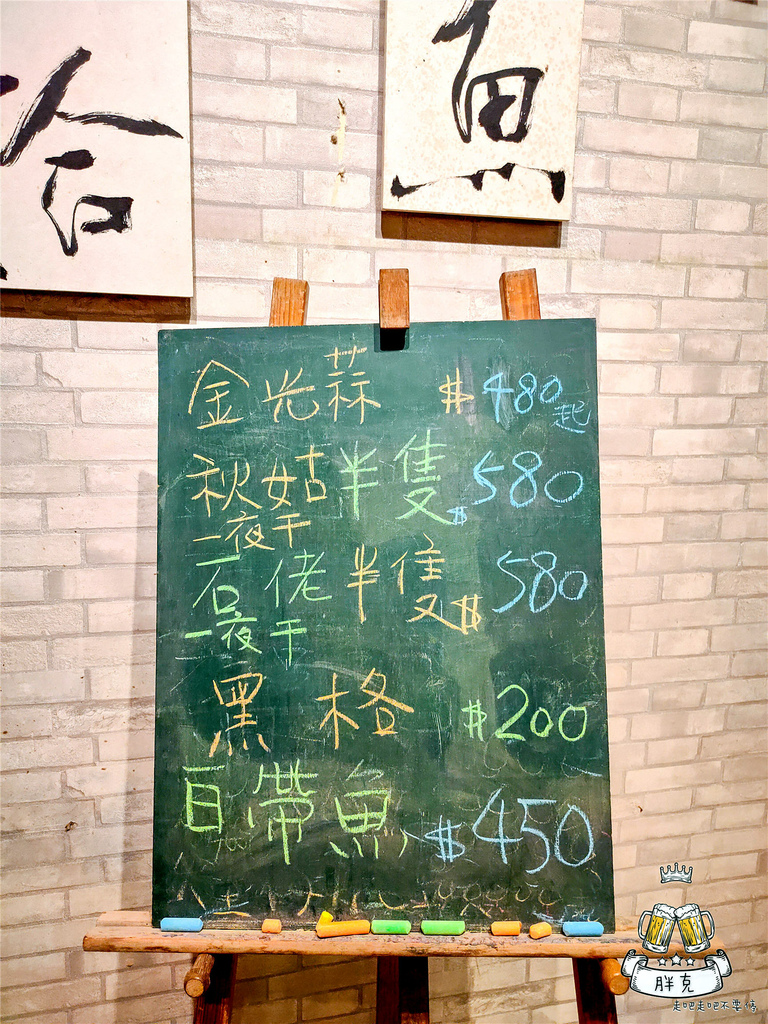 合
魚
金光蒜 $480起
秋姑半隻$580
一夜干
石佬半隻$580
一夜干
黑格 $200
白帶魚 $450
胖克
走吧走吧不要停